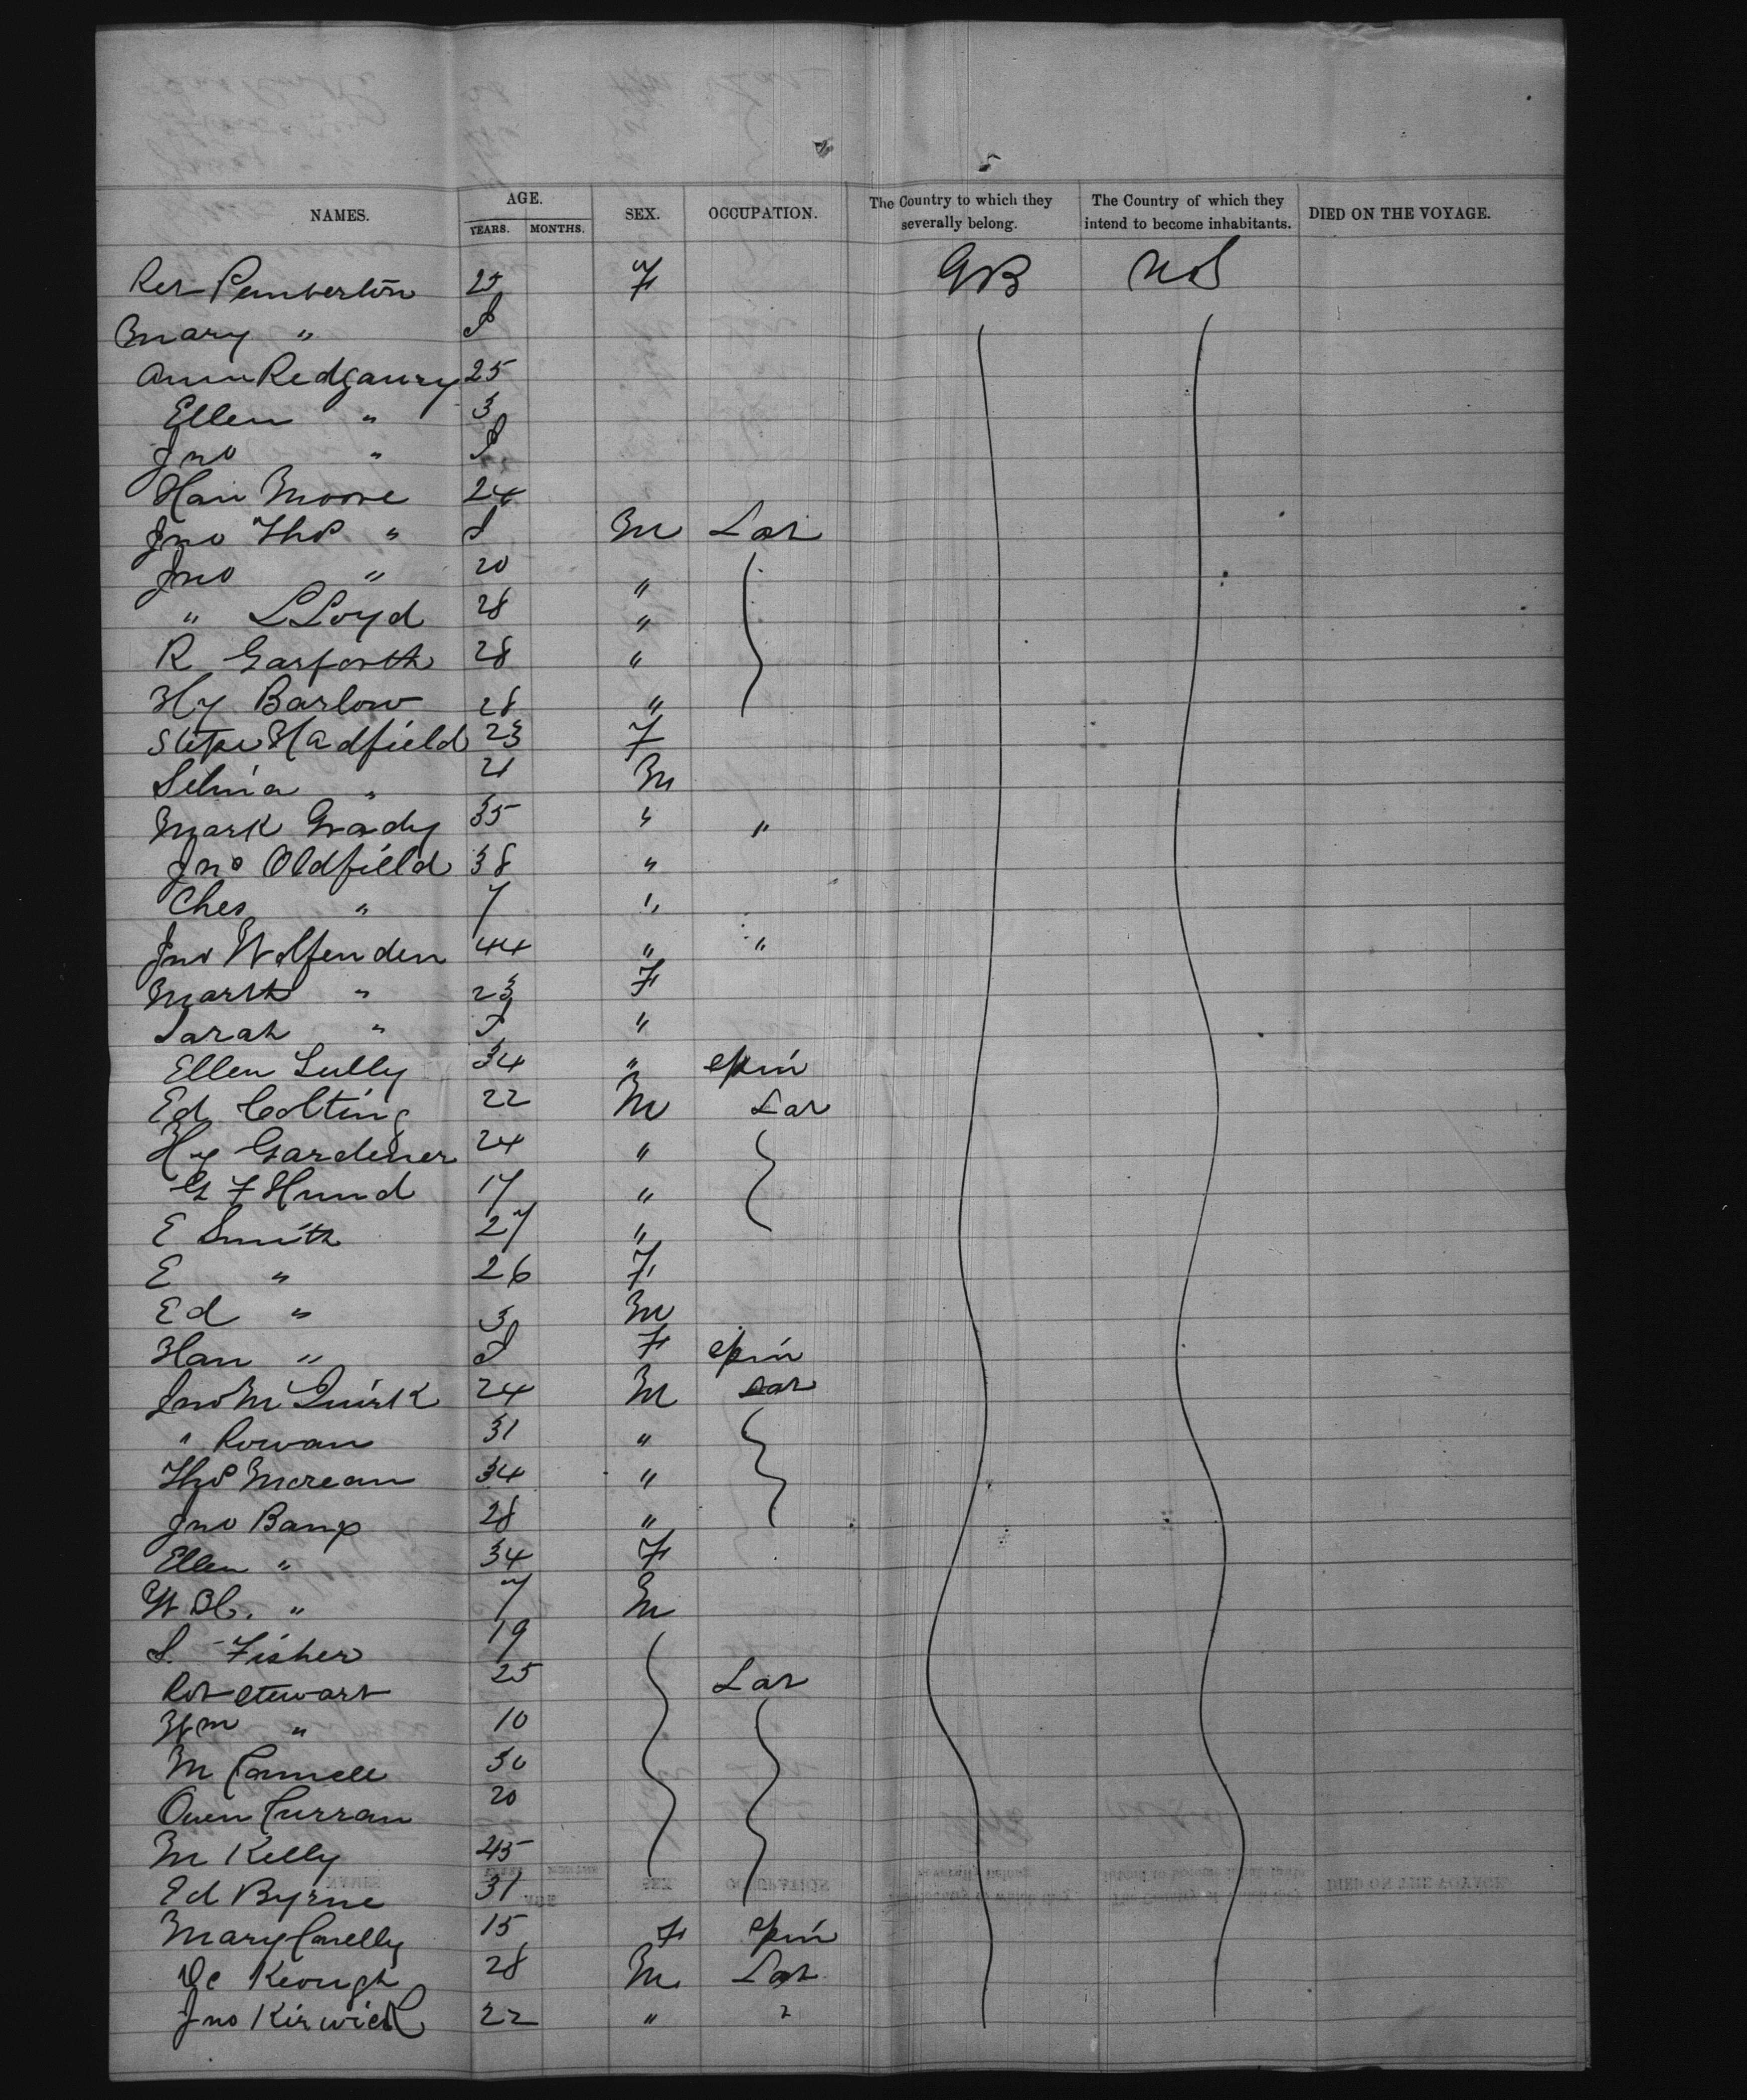 5
NAMES. AGE. YEARS. MONTHS. SEX. OCCUPATION. The Country to which they severally belong. The Country of which they intend to become inhabitants. DIED ON THE VOYAGE.
Pemberton 25 F GB US
Mary " I
Ann Redgaury 25
Ellen " 3
Jno " I
Han Moore 24
Jno Thos " I M Lar
Jno " 20 "
" LLoyd 28 "
R Garforth 28 "
Hy Barlow 28 "
Hadfield 23 F
Selina " 21 M
Mark Grady 35 " "
Jno Oldfield 38 "
Ches " 7 "
Jno Wolfenden 44 " "
Marth " 23 F
Sarah " I "
Ellen Lully 34 " spin
Ed Colting 22 M Lar
Hy Gardener 24 "
G F Hund 17 "
E Smith 27 "
E " 26 F
Ed " 3 M
Han " I F spin
Jno M Quirk 24 M Lar
" Rowan 31 "
Thos 34 "
Jno Bamp 28 "
Ellen " 34 F
W " 7 M
S. Fisher 19
Rot Stewart 25 Lar
Wm " 10
M Connell 30
Owen Curran 20
M Kelly 45
Ed Byrne 31
Mary Conelly 15 F spin
Keough 28 M Lar
Jno Kirwick 22 " "